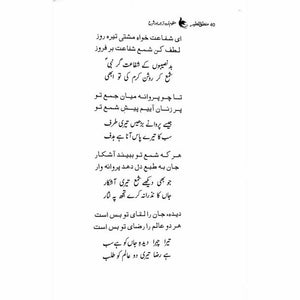 40
ای شفاعت خواهِ مشتی تیره روز
لطف کن شمع شفاعت بر فروز
بد نصیبوں کے شفاعت گر نبیؐ
شمع کر روشن کرم کی تو ابھی
تا چو پروانه میان جمع تو
پر زنان آییم پیش شمع تو
جیسے پروانے بڑھیں تیری طرف
سب کا تیرے پاس آنا ہے ہدف
هر که شمع تو ببیند آشکار
جان به طبع دل دهد پروانه وار
جو بھی دیکھے شمع تیری آشکار
جاں کا نذرانہ کرے تجھ پہ نثار
دیده جان را لقای تو بس است
هر دو عالم را رضای تو بس است
تیرا چہرا دیدہ جاں کو ہے سب
ہے رضا تیری دو عالم کو طلب